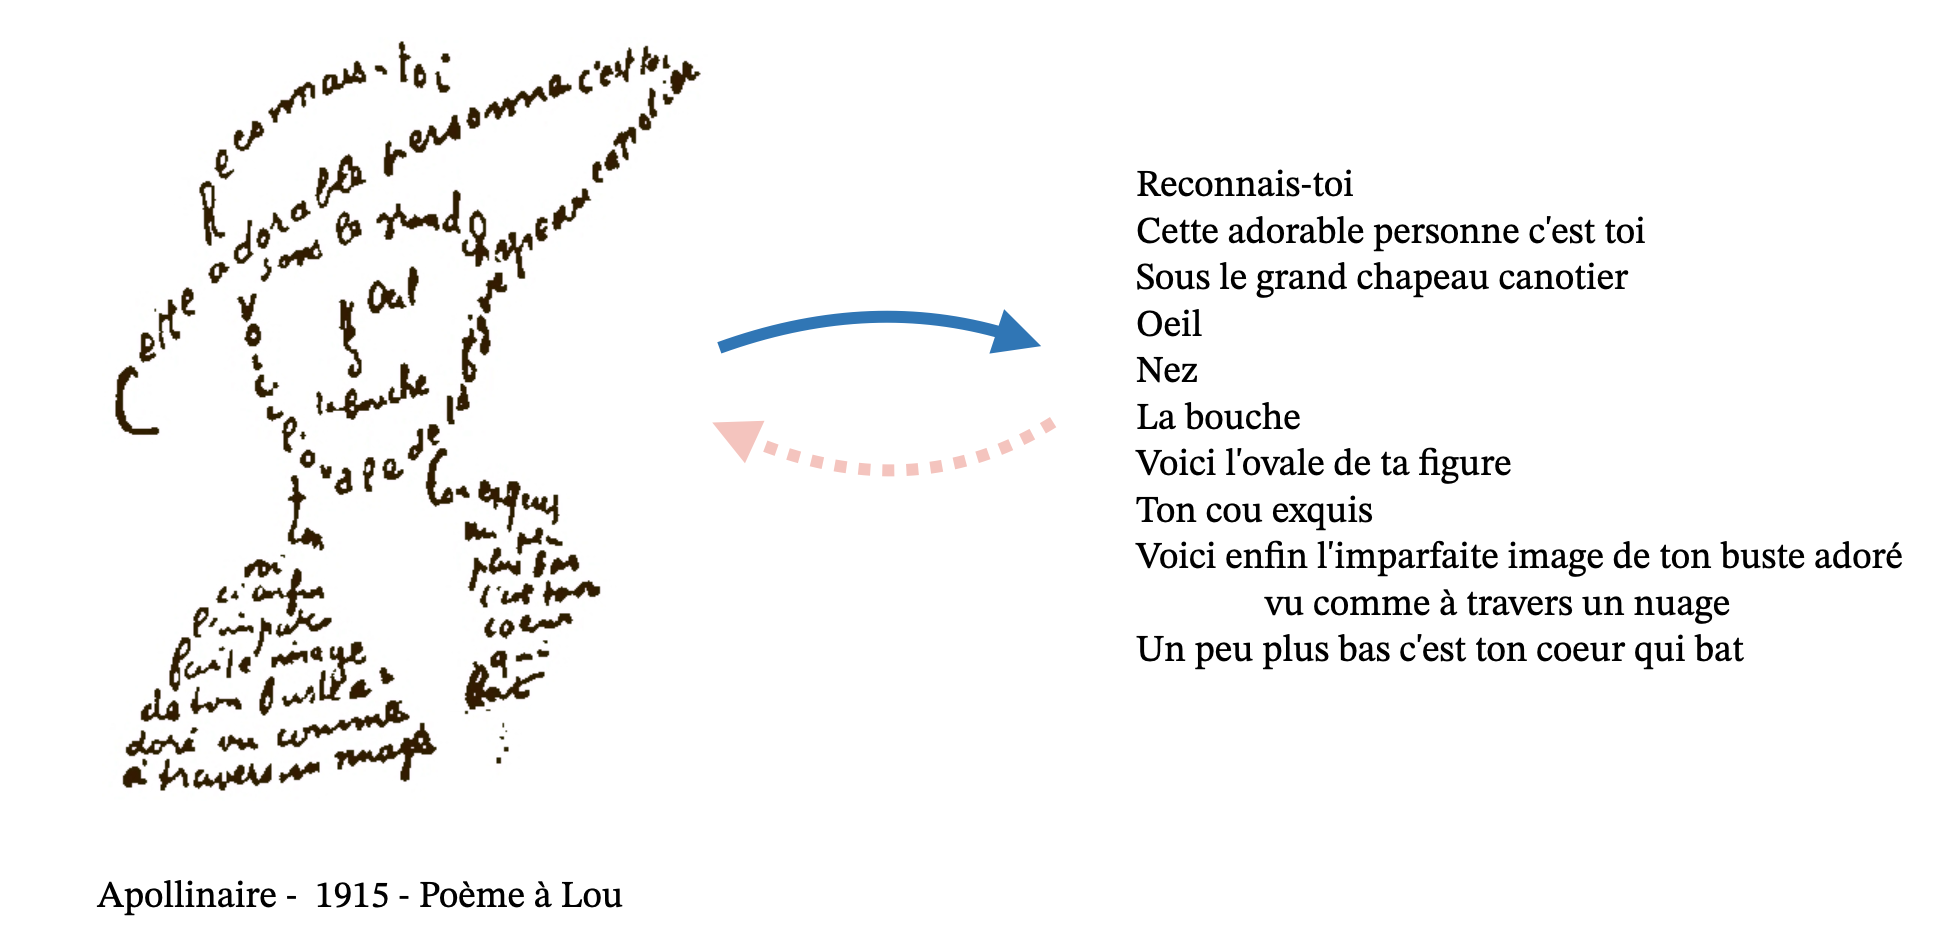 Reconnais-toi
Cette adorable personne c'est toi
sous le grand chapeau canotier
Oeil
Nez
la bouche
Voici l'ovale de ta figure
ton
Cou exquis
voi
ci enfin
l'impar
faite image
de ton buste a
doré vu comme
à travers un nuage
un peu
plus bas
c'est ton
coeur
qui
bat
Reconnais-toi
Cette adorable personne c'est toi
Sous le grand chapeau canotier
Oeil
Nez
La bouche
Voici l'ovale de ta figure
Ton cou exquis
Voici enfin l'imparfaite image de ton buste adoré
vu comme à travers un nuage
Un peu plus bas c'est ton coeur qui bat
Apollinaire - 1915 - Poème à Lou